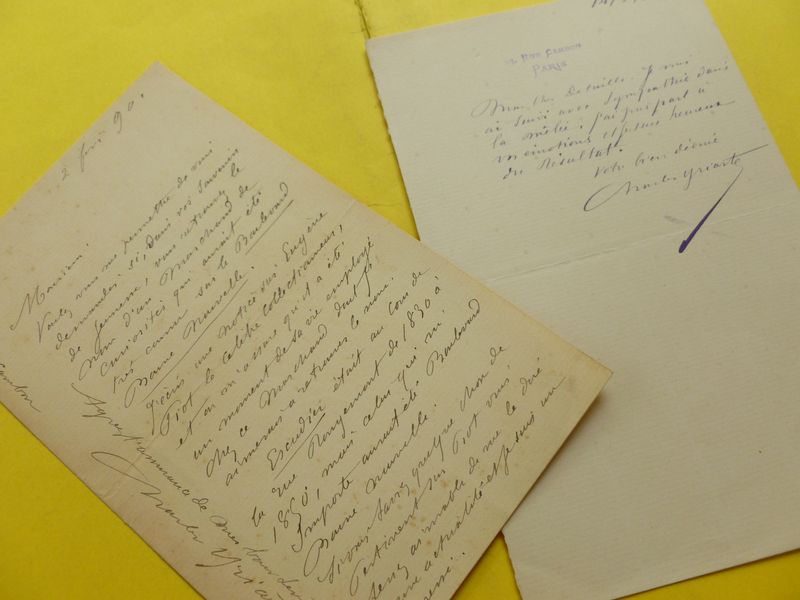 2 fév 90.
Monsieur,
Voulez vous me permettre de vous
demander si, dans vos souvenirs
de jeunesse, vous retrouvez le
nom d'un Marchand de
curiosités qui aurait été
très connu sur le Boulevard
Bonne Nouvelle.
J'écris une notice sur Eugène
Piot le célèbre collectionneur,
et on m'assure qu'il a été
un moment de sa vie employé
chez ce Marchand dont je
aimerais à retrouver le nom.
Escudier était au coin de
la rue Rougemont de 1830 à
1850, mais celui qui m'
importe aurait été Boulevard
Bonne Nouvelle.
Si vous savez quelque chose de
Pertinent sur Piot vous
serez aimable de me le dire
actualité et je suis un
Cambon
Agréez l'assurance de mes
Charles Yria
RUE CAMBON
PARIS
Mon cher Detaille. Je vous
ai suivi avec sympathie dans
la mêlée; j'ai pris part à
vos émotions et je suis heureux
du résultat.
Votre bien dévoué
Charles Yriarte